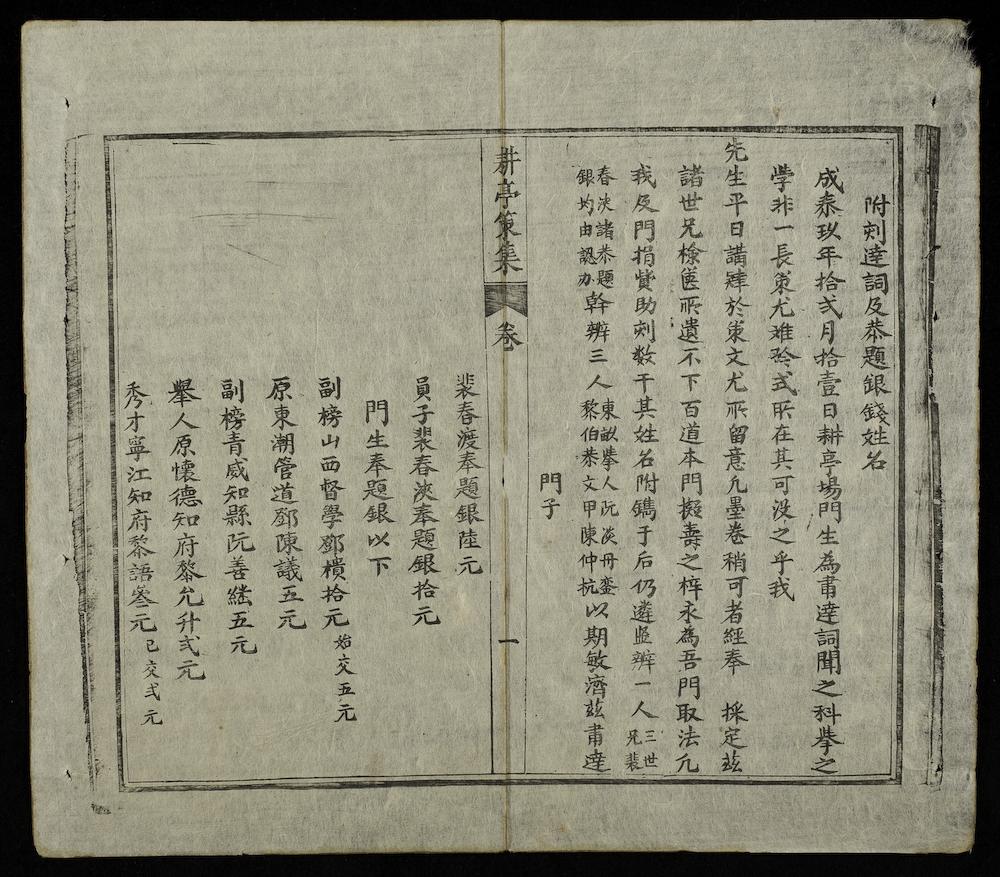 附刻達詞及恭題銀錢姓名
成泰玖年拾弍月拾壹日耕亭場門生為甫達詞聞之科舉之
學非一長策尤难矜式所在其可没之乎我
先生平日講肄於策文尤所留意凡墨卷稍可者經奉　採定兹
諸世兄檢篋所遺不下百道本門擬壽之梓永為吾門取法凡
我及門捐貲助刻数干其姓名附鐫于后仍遴监辨一人三世兄裴
春浹諸恭題銀均由認办幹辨三人東畝舉人阮淡冊銮黎伯恭文甲陳仲杭以期敏濟兹甫達
門子
耕亭策集
卷
一
裴春渡奉題銀陸元
員子裴春浹奉題銀拾元
門生奉題銀以下
副榜山西督學鄧積拾元始交五元
原東潮管道鄧陳議五元
副榜青威知縣阮善繼五元
舉人原懷德知府黎允升弍元
秀才寧江知府黎語叁元已交弍元